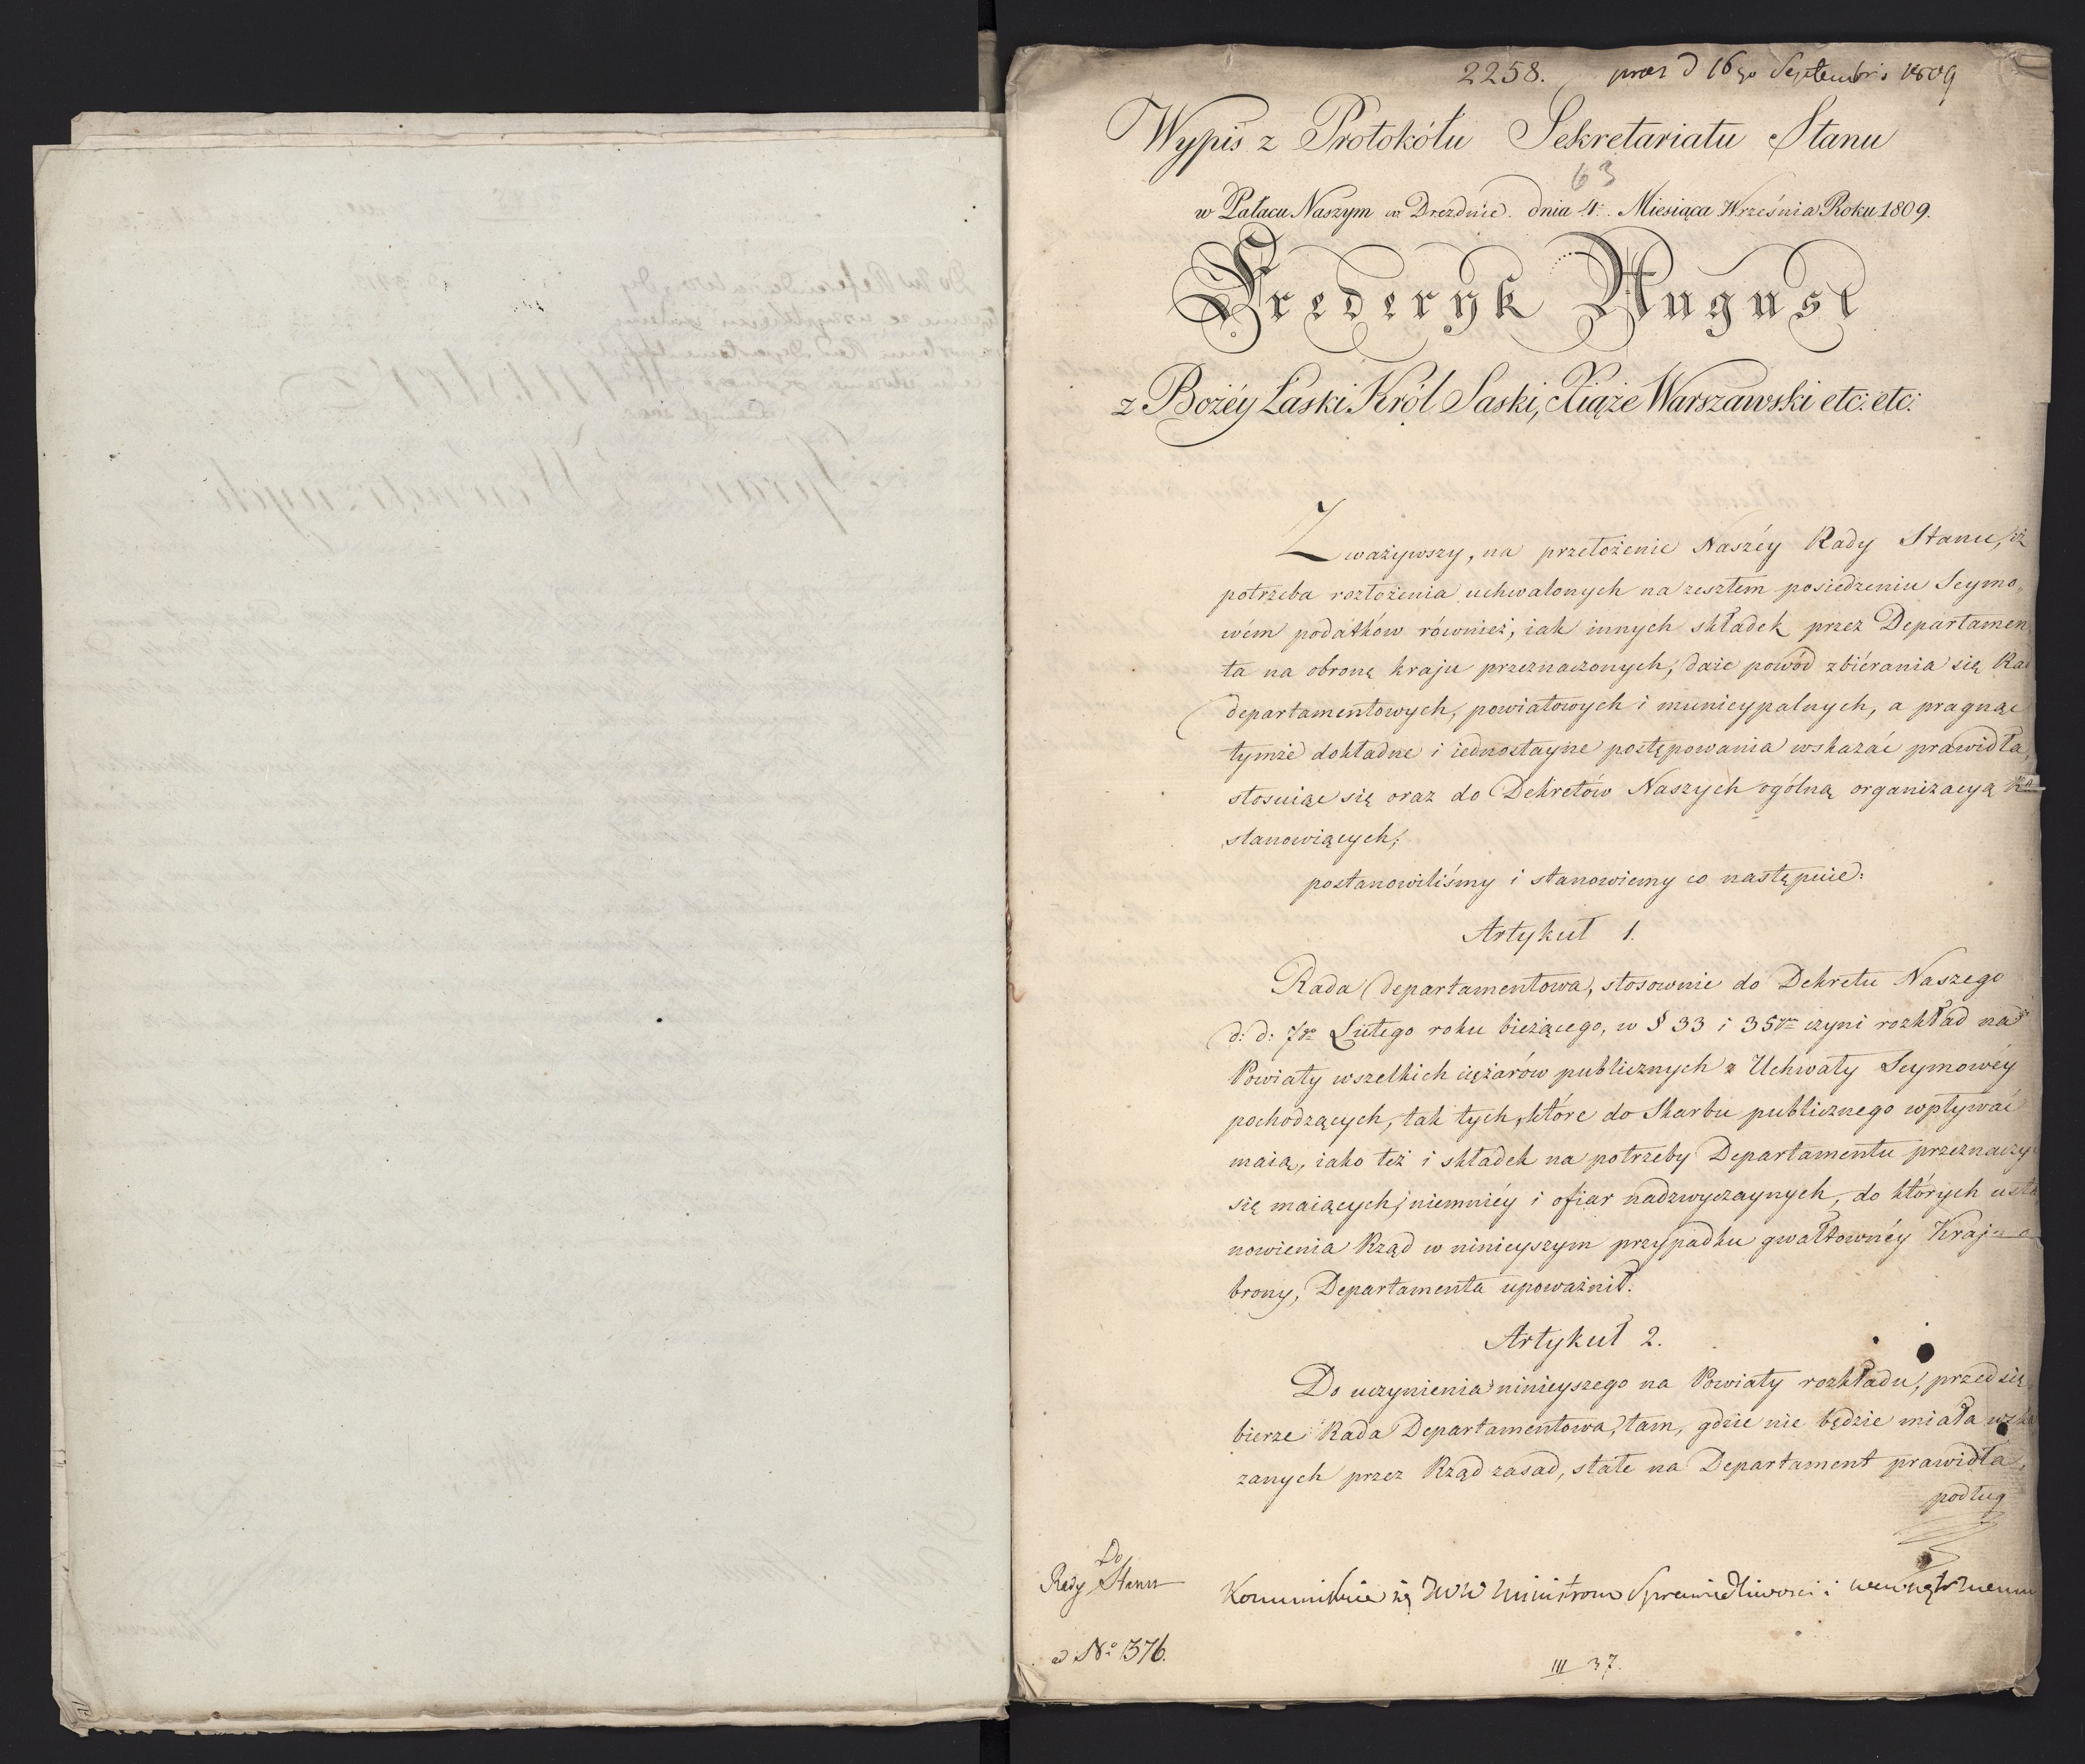 2258. præs d 16go Septembris 1809
Wypis z Protokółu Sekretariatu Stanu
63
w Pałacu Naszym w Dreźdnie. dnia 4. Miesiąca Września Roku 1809.
Frederyk August
z Bożéy Łaski Król Saski, Xiąże Warszawski etc: etc:
Zważywszy, na przełożenie Naszéy Rady Stanu, iż
potrzeba rozłożenia uchwalonych na zeszłem posiedzeniu Seymo„
wém podatków również, iak innych składek przez Departamen
ta na obronę kraju przeznaczonych, daie powód zbiérania się Rad
departamentowych, powiatowych i municypalnych, a pragnąc
tymże dokładne i iednostayne postępowania wskazać prawidła,
stosuiąc się oraz do Dekretów Naszych ogólną organizacyą Ra
stanowiących;
postanowiliśmy i stanowiemy co następuie:
Artykuł 1.
Rada departamentowa, stosownie do Dekretu Naszego
d: d: 7go Lutego roku bieżącego, w § 33 i 35tym czyni rozkład na
Powiaty wszelkich ciężarów publicznych z Uchwały Seymowéy
pochodzących, tak tych, które do Skarbu publicznego wpływać
maią, iako też i składek na potrzeby Departamentu przeznaczyć
się maiących; niemniéy i ofiar nadzwyczaynych, do których usta
nowienia Rząd w ninieyszym przypadku gwałtownéy Kraju o
brony, Departamenta upoważnił.
Artykuł 2.
Do uczynienia ninieyszego na Powiaty rozkładu, przedsię
bierze Rada Departamentowa, tam, gdzie nie będzie miała wska
zanych przez Rząd zasad, stałe na Departament prawidła,
podług
Do
Rady Stanu
Kommunikuie się JWW Ministrom Sprawiedliwosci i wewnętrznemu
ad No 1376.
III 37.